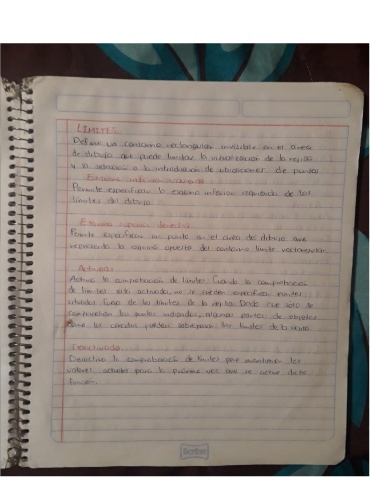 LIMITES
Define un contorno rectangular invisible en el área
de dibujo que puede limitar la visualización de la rejilla
y la introducción de ubicaciones de puntos
Esquina inferior izquierda
Permite especificar la esquina inferior izquierda de los
límites del dibujo
Esquina superior derecha
Permite especificar un punto en el área de dibujo que
representa la esquina opuesta del contorno límite rectangular
Activado
Activa la comprobación de límites. Cuando la comprobación
de límites está activada no se pueden especificar puntos
situados fuera de los límites de la rejilla. Dado que solo se
comprueban los puntos indicados, algunas partes de objetos
como los círculos pueden sobrepasar los límites de la rejilla.
Desactivado
Desactiva la comprobación de límites pero mantiene los
valores actuales para la próxima vez que se active dicha
función.
Scribe